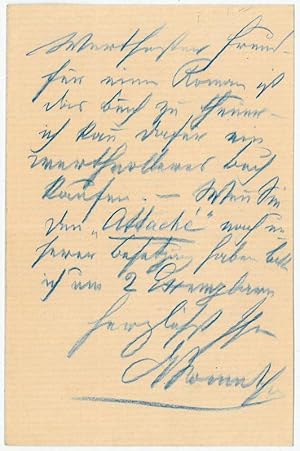 Werthester Freund
für einen Roman ist
das Buch zu theuer –
ich kau dafür ein
werthvolleres Buch
kaufen. – Wenn Sie
den "Attaché" nach un
serer Besetzung haben bitte
ich um 2 Exemplare
herzlichst Ihr